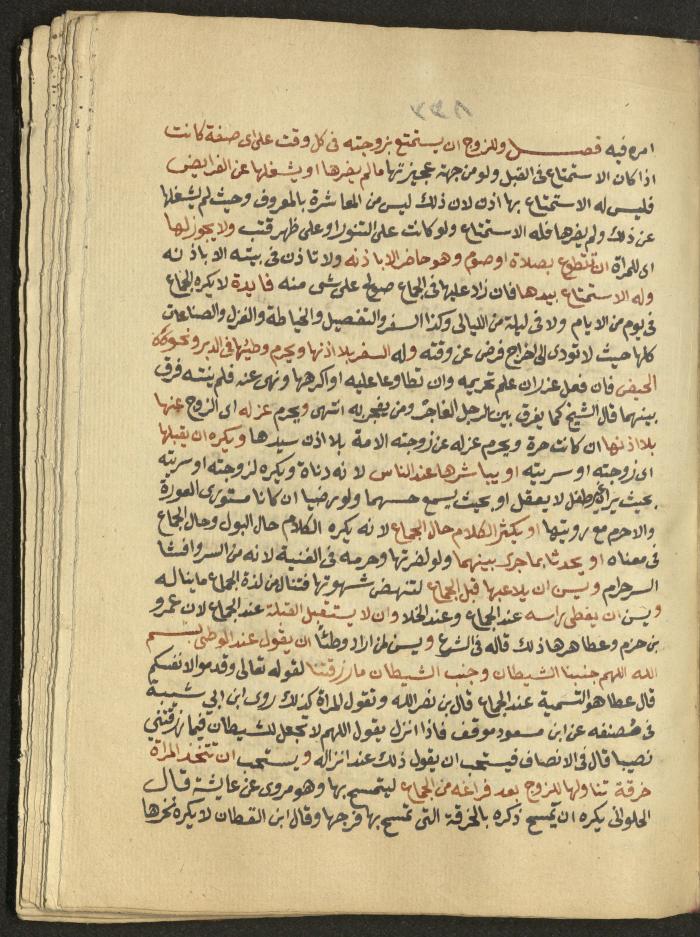 امره فيه فصل وللزوج ان يستمتع بزوجته فى كل وقت على اى صفة كانت
اذا كان الاستمتاع فى القبل ولو من جهة عجيزتها مالم يضرها او يشغلها عن الفرايض
فليس له الاستمتاع بها اذن لان ذلك ليس من المعاشرة بالمعروف وحيث لم يشغلها
عن ذلك ولم يضرها فله الاستمتاع ولو كانت على التنور او على ظهر قتب ولا يجوز لها
اى للمراة ان تتطوع بصلاة او صوم وهو حاضر الا باذنه ولا تاذن فى بيته الا باذنه
وله الاستمتاع بيدها فان زاد عليها فى الجماع صولح على شى منه فايدة لا يكره الجماع
فى يوم من الايام ولا فى ليلة من الليالى وكذا السفر والتفصيل والخياطة والغزل والصناعات
كلها حيث لا تودى الى اخراج فرض عن وقته وله السفر بلا اذنها ويحرم وطئها فى الدبر ونحو
الحيض فان فعل عزر ان علم تحريمه وان تطاوعا عليه او اكرهها ونهى عنه فلم ينته فرق
بينهما قال الشيخ كما يفرق بين الرجل الفاجر ومن يفجر به انتهى ويحرم عزله اى الزوج عنها
بلا اذنها ان كانت حرة ويحرم عزله عن زوجته الامة بلا اذن سيدها ويكره ان يقبلها
اى زوجته او سريته او يباشرها عند الناس لانه دناة ويكره لزوجته او سريته
بحيث يراه غير طفل لا يعقل او بحيث يسمع حسهما ولو رضيا ان كانا مستورى العورة
والا حرم مع رويتها او يكثر الكلام حال الجماع لانه يكره الكلام حال البول وحال الجماع
فى معناه او يحدثا بما جرى بينهما ولو لضرتها وحرمه فى الغنية لانه من السر وافشا
السر حرام ويسن ان يلاعبها قبل الجماع لتنهض شهوتها فتنال من لذة الجماع ما يناله
ويسن ان يغطى راسه عند الجماع وعند الخلا وان لا يستقبل القبلة عند الجماع لان عمرو
بن حزم وعطا كرها ذلك قاله فى الشرع ويسن لمن اراد وطئا ان يقول عند الوطئ بسم
الله اللهم جنبنا الشيطان وجنب الشيطان ما رزقتنا لقوله تعالى وقدموا لانفسكم
قال عطا هو التسمية عند الجماع قال بن نصر الله وتقول المراة كذلك روى ابن ابى شيبة
فى مصنفه عن ابن مسعود موقف فاذا انزل يقول اللهم لا تجعل للشيطان فيما رزقتني
نصيبا قال فى الانصاف فيستحب ان يقول ذلك عند انزاله ويستحب ان تتخذ المراة
خرقة تناولها للزوج بعد فراغه من الجماع ليتمسح بها وهو مروى عن عايشة قال
الحلوانى يكره ان يمسح ذكره بالخرقة التى تمسح بها فرجها وقال ابن القطان لا يكره نخرها